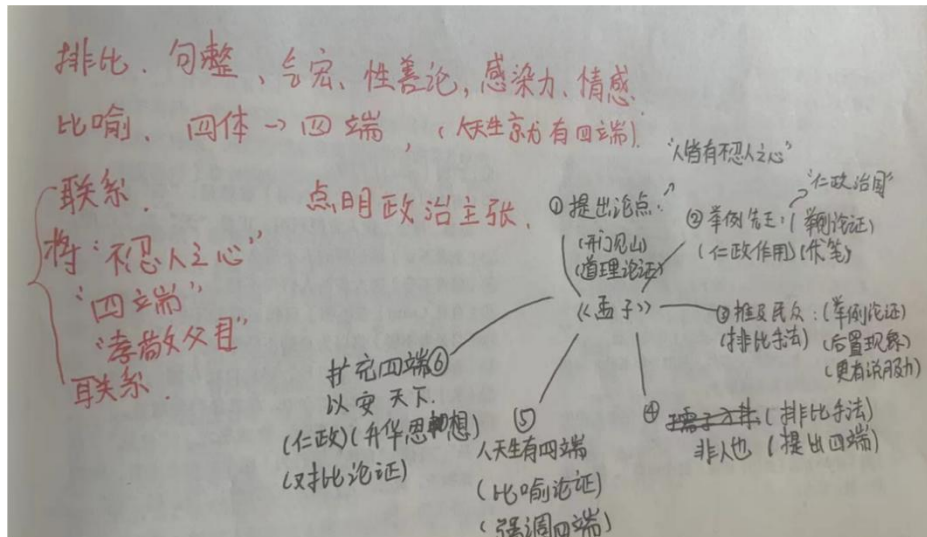 排比、句整、气宏、性善论,感染力、情感.
比喻、四体→四端,(人天生就有四端).
联系.
点明政治主张.
将“不忍人之心”
“四端”
“孝敬父母”
联系.
“人皆有不忍人之心”
①提出论点:
(开门见山)
(道理论证)
“仁政治国”
②举例先王:(举例论证)
(仁政作用)(伏笔)
《孟子》
③推及民众:(举例论证)
(排比手法)(后置现释)
(更有说服力)
④(排比手法)
非人也(提出四端)
⑤
人天生有四端
(比喻论证)
(强调四端)
扩充四端⑥
以安天下.
(仁政)(升华思想)
(对比论证)